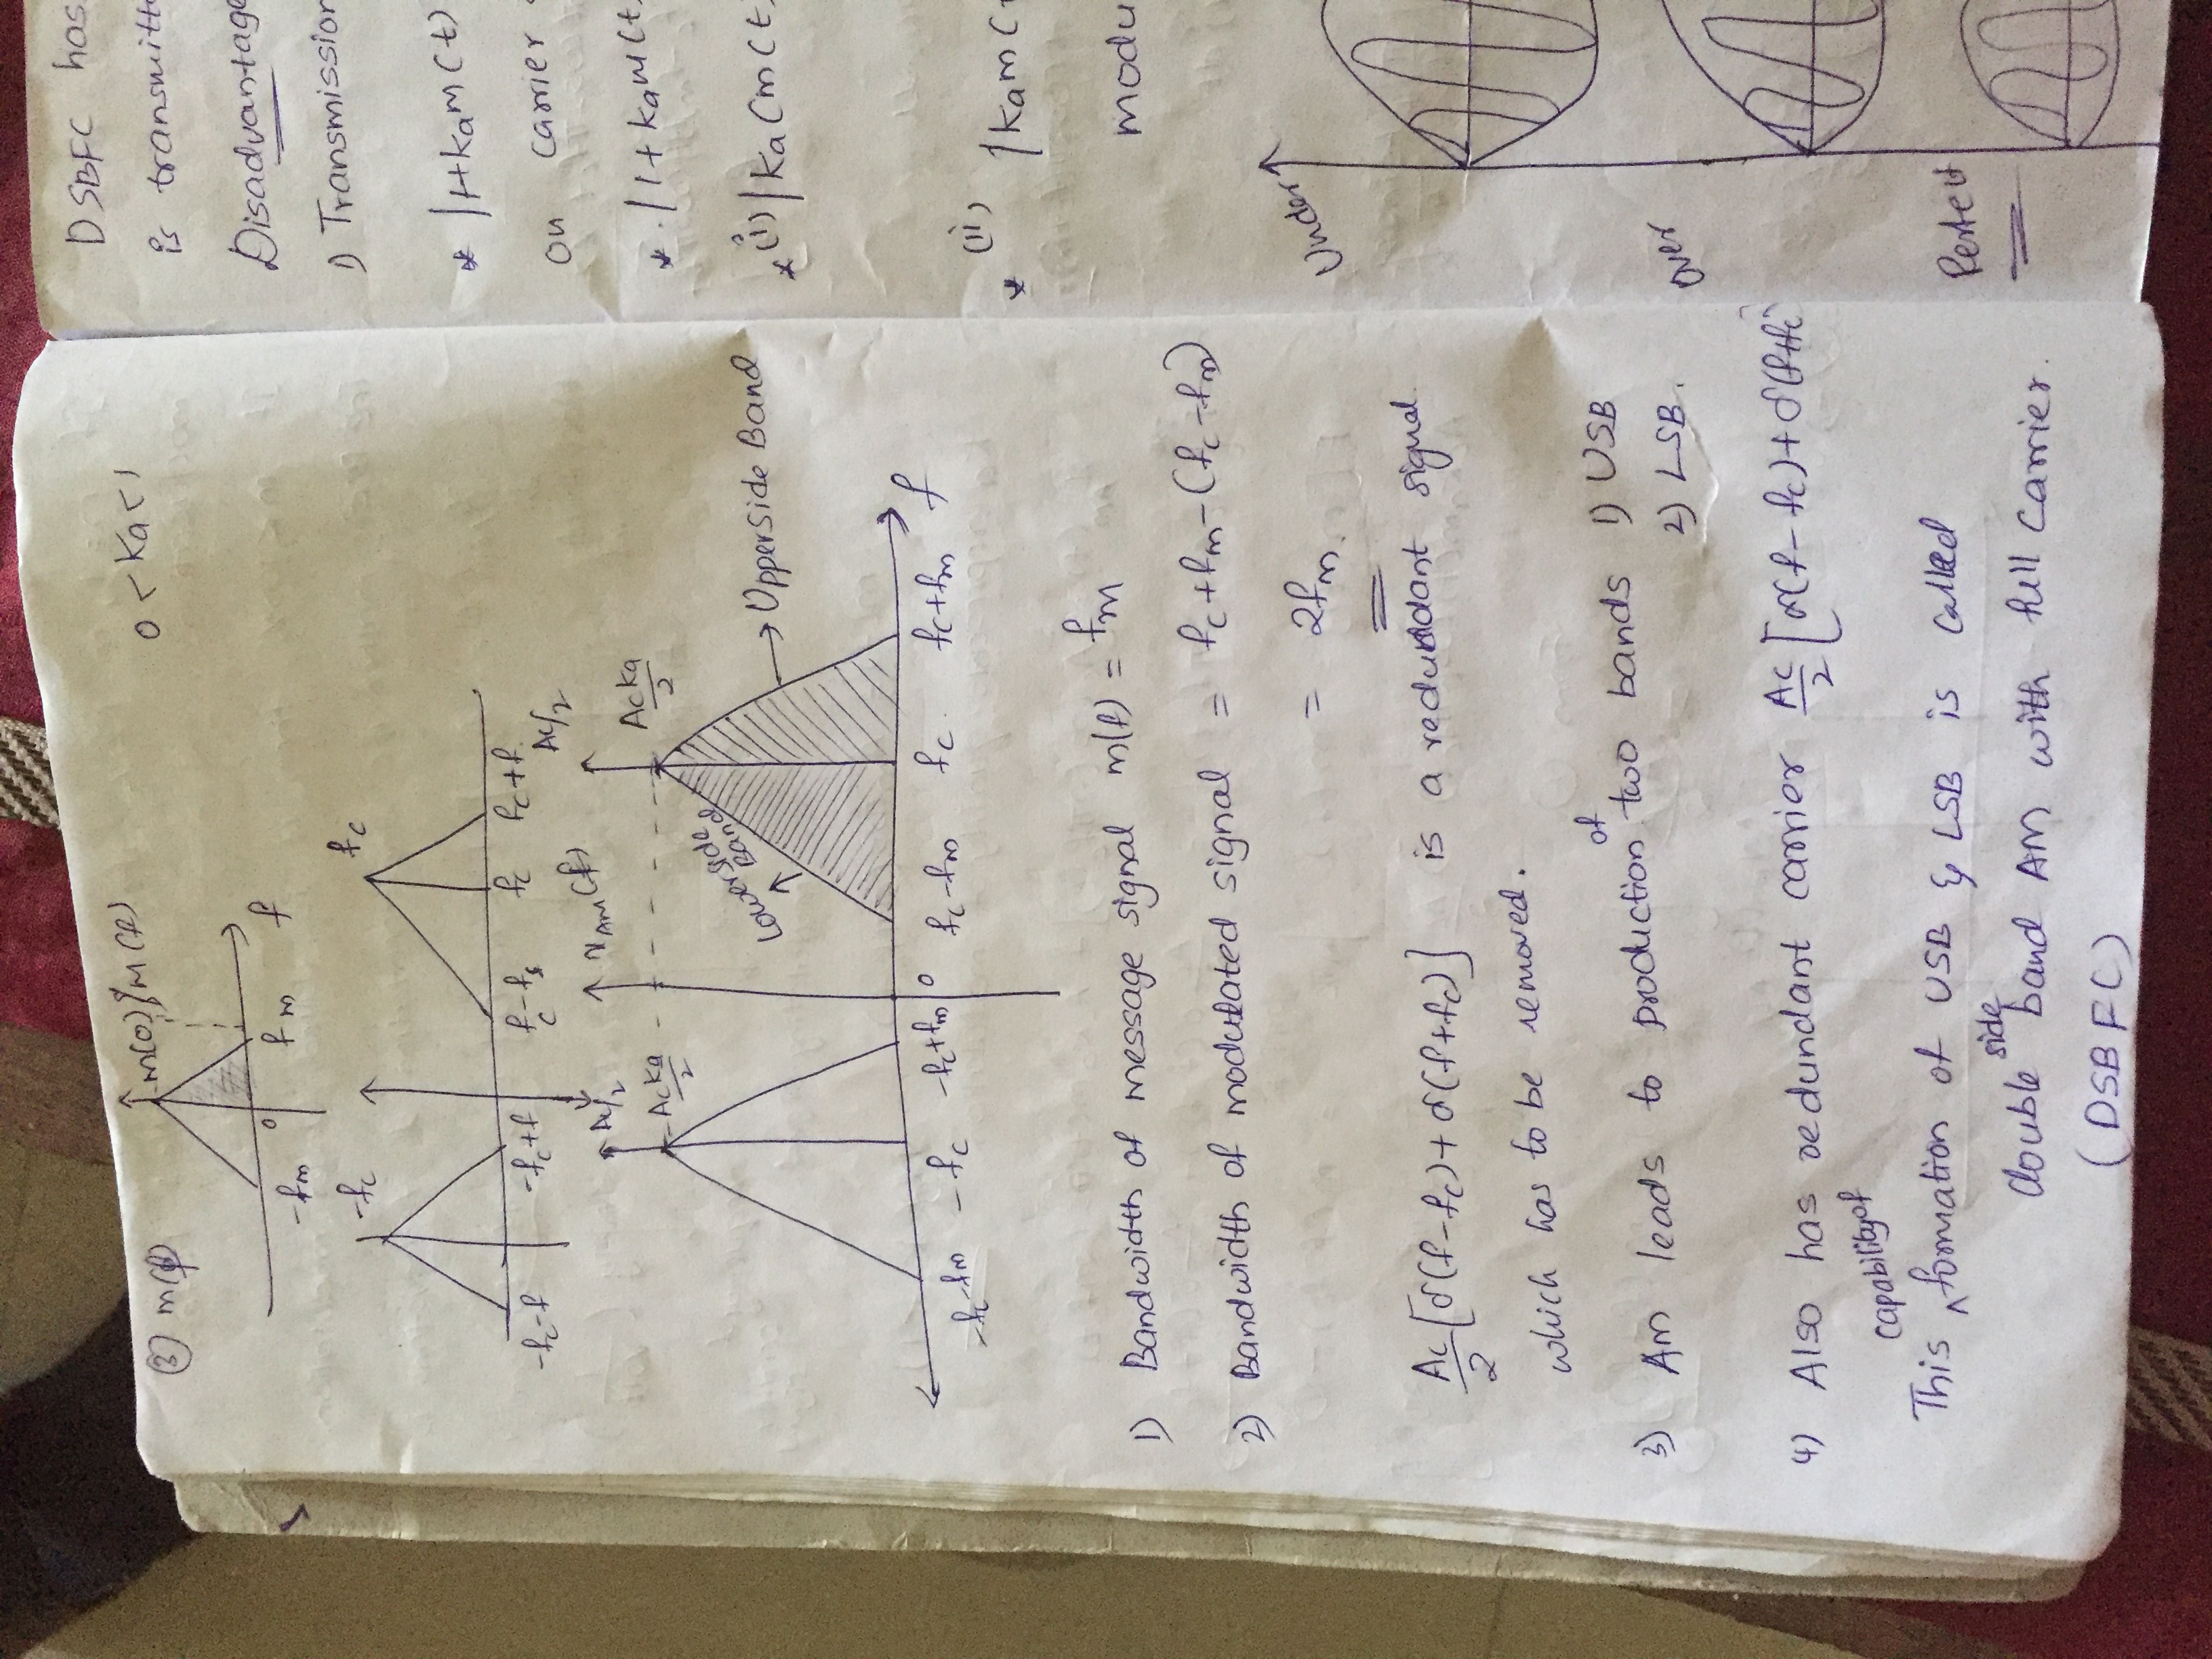 ③ m(f)
m(0) M(f)
0 < Ka < 1
-fm 0 fm f
-fc fc
-fc-f -fc+f fc-f fc fc+f
Ac/2 xAM(f) Ac/2
AcKa/2 AcKa/2
Lowerside Band
Upperside Band
-fc-fm -fc -fc+fm 0 fc-fm fc fc+fm f
1) Bandwidth of message signal m(f) = fm
2) Bandwidth of modulated signal = fc+fm-(fc-fm)
= 2fm.
Ac/2 [δ(f-fc)+δ(f+fc)] is a redundant signal.
which has to be removed.
3) AM leads to production of two bands 1) USB
2) LSB.
4) Also has redundant carrier Ac/2 [δ(f-fc)+δ(f+fc)
This capability of formation of USB & LSB is called
double side band AM with full carrier.
(DSBFC)
DSBFC has
is transmitt
Disadvantage
1) Transmission
* |1+kam(t)
on carrier
* |1+kam(t)
* (i) |ka(m(t)
* (ii) |kam(t
modu
Under
Over
Perfect